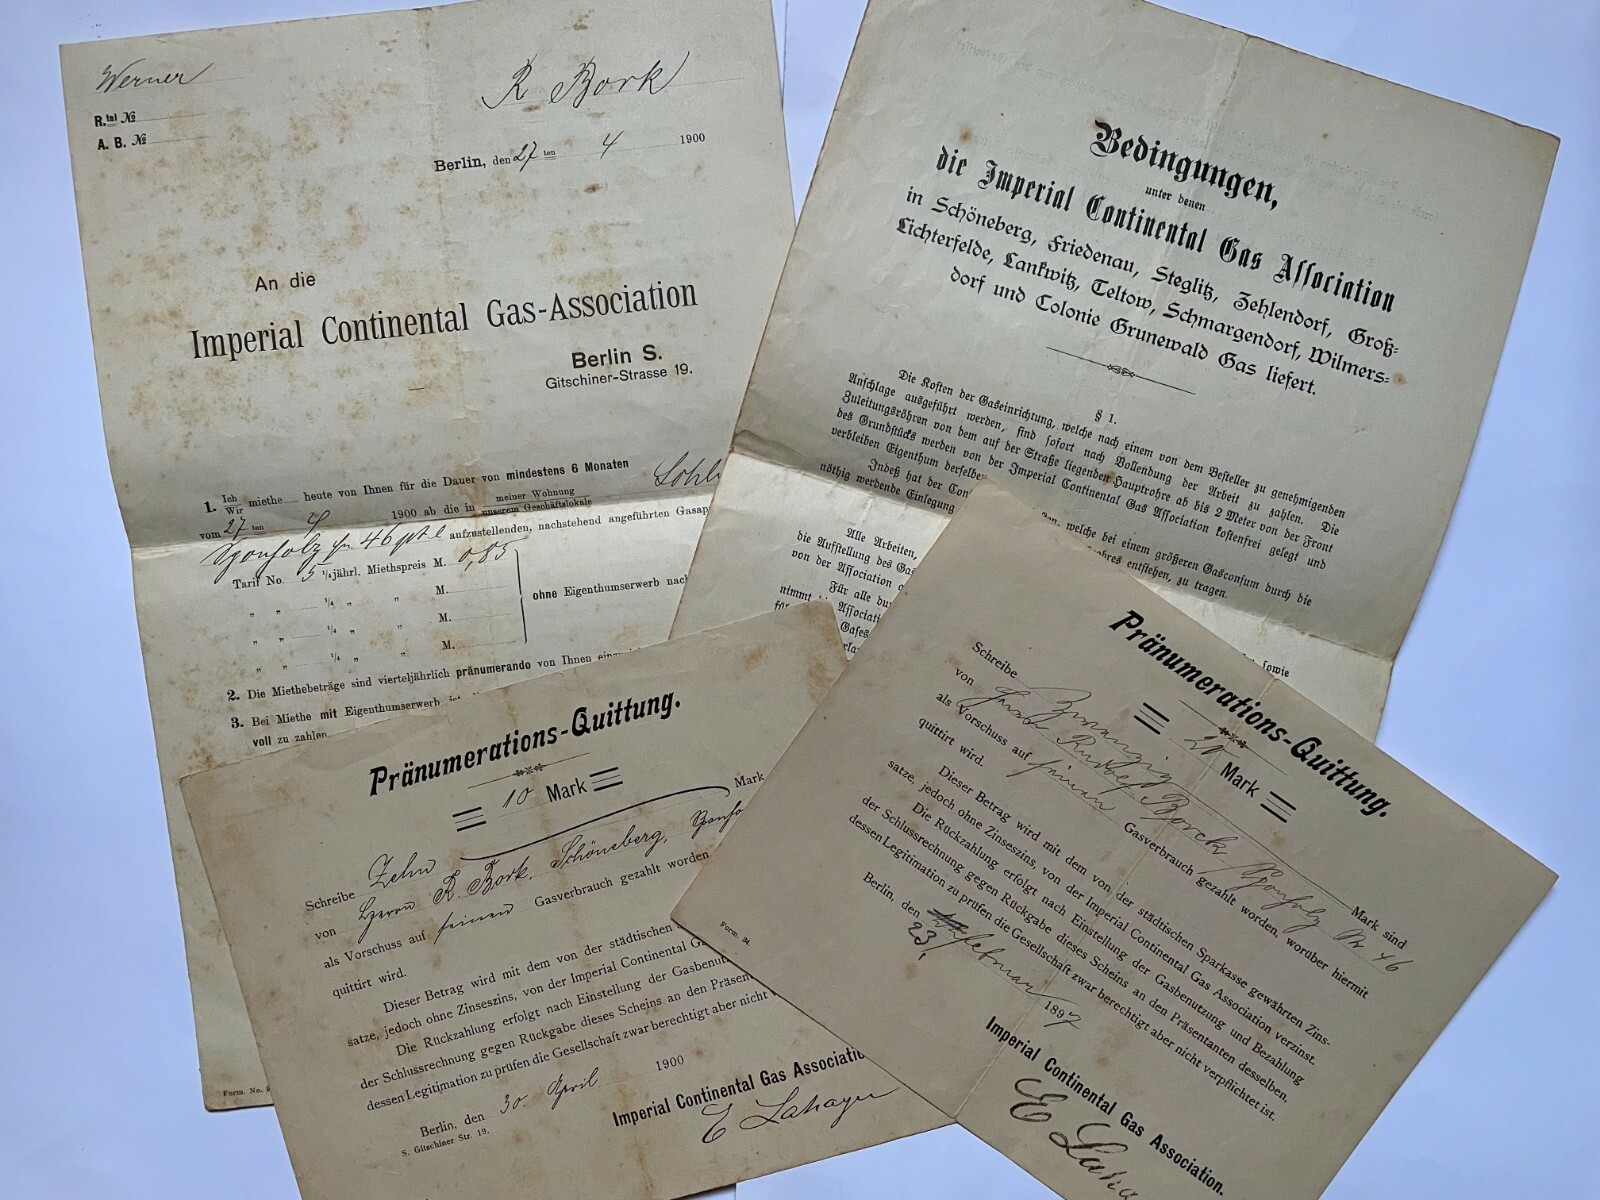 Werner
R Bork
R.tal №
A. B. №
Berlin, den 27 ten 4 1900
An die
Imperial Continental Gas-Association
Berlin S.
Gitschiner-Strasse 19.
1. Ich
Wir miethe heute von Ihnen für die Dauer von mindestens 6 Monaten
vom 27 ten 4 1900 ab die in meiner Wohnung
unserem Geschäftslokale
46 aufzustellenden, nachstehend angeführten Gasap
Tarif No. 5 ¼ jährl. Miethspreis M. 0,85
„ „ ¼ „ „ M.
„ „ ¼ „ „ M.
„ „ ¼ „ „ M.
ohne Eigenthumserwerb nach
2. Die Miethebeträge sind vierteljährlich pränumerando von Ihnen
3. Bei Miethe mit Eigenthumserwerb
voll zu zahlen
Form. No.
Bedingungen,
unter denen
die Imperial Continental Gas Association
in Schöneberg, Friedenau, Steglitz, Zehlendorf, Groß-
Lichterfelde, Lankwitz, Teltow, Schmargendorf, Wilmers-
dorf und Colonie Grunewald Gas liefert.
§ 1.
Die Kosten der Gaseinrichtung, welche nach einem von dem Besteller zu genehmigenden
Anschlage ausgeführt werden, sind sofort nach Vollendung der Arbeit zu zahlen. Die
Zuleitungsröhren von dem auf der Straße liegenden Hauptrohre ab bis 2 Meter von der Front
des Grundstücks werden von der Imperial Continental Gas Association kostenfrei gelegt und
verbleiben Eigenthum derselben
Indeß hat der Con
welche bei einem größeren Gasconsum durch die
nöthig werdende Einlegung
entstehen, zu tragen.
Alle Arbeiten,
sowie
die Aufstellung des Gas
von der Association
Für alle
nimmt
Associati
Gases
Pränumerations-Quittung.
10 Mark
Schreibe Zehn Mark
von Herrn R. Bork. Schöneberg,
als Vorschuss auf seinen Gasverbrauch gezahlt worden
quittirt wird.
Dieser Betrag wird mit dem von der städtischen
satze, jedoch ohne Zinseszins, von der Imperial Continental
Die Rückzahlung erfolgt nach Einstellung der Gasbenut
der Schlussrechnung gegen Rückgabe dieses Scheins an den Präsen
dessen Legitimation zu prüfen die Gesellschaft zwar berechtigt aber nicht
Berlin, den 30. April 1900
S. Gitschiner Str. 19.
Imperial Continental Gas Associatio
Pränumerations-Quittung.
20 Mark
Schreibe Zwanzig Mark sind
von Herrn Rudolf Borck Sponholz Nr. 46
als Vorschuss auf seinen Gasverbrauch gezahlt worden, worüber hiermit
quittirt wird.
Dieser Betrag wird mit dem von der städtischen Sparkasse gewährten Zins-
satze, jedoch ohne Zinseszins, von der Imperial Continental Gas Association verzinst.
Die Rückzahlung erfolgt nach Einstellung der Gasbenutzung und Bezahlung
der Schlussrechnung gegen Rückgabe dieses Scheins an den Präsentanten desselben,
dessen Legitimation zu prüfen die Gesellschaft zwar berechtigt aber nicht verpflichtet ist.
Berlin, den 23. Februar 1897
Form. 24.
Imperial Continental Gas Association.